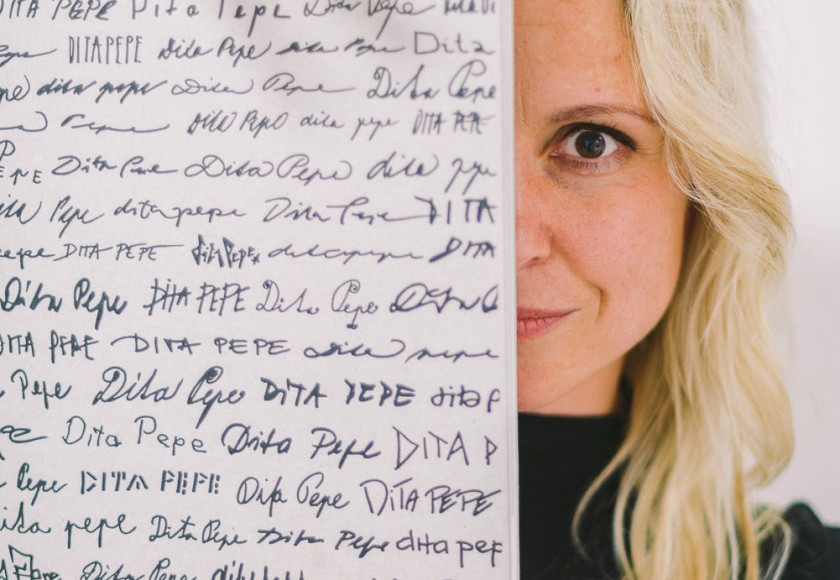 PEPE Dita Pepe Dita Pepe
Pepe DITA PEPE Dita Pepe Dita Pepe Dita
dita pepe Dita Pepe Dita Pepe
Dita Pepe dita pepe DITA PEPE
Dita Pepe Dita Pepe dita pepe
Pepe dita pepe Dita Pepe DITA
pepe DITA PEPE Dita Pepe dita pepe DITA
Dita Pepe DITA PEPE Dita Pepe Dita
DITA PEPE DITA PEPE dita pepe
Pepe Dita Pepe DITA PEPE dita p
Dita Pepe Dita Pepe DITA P
Pepe DITA PEPE Dita Pepe DITA PEPE
dita pepe Dita Pepe Dita Pepe dita pep
Dita Pepe